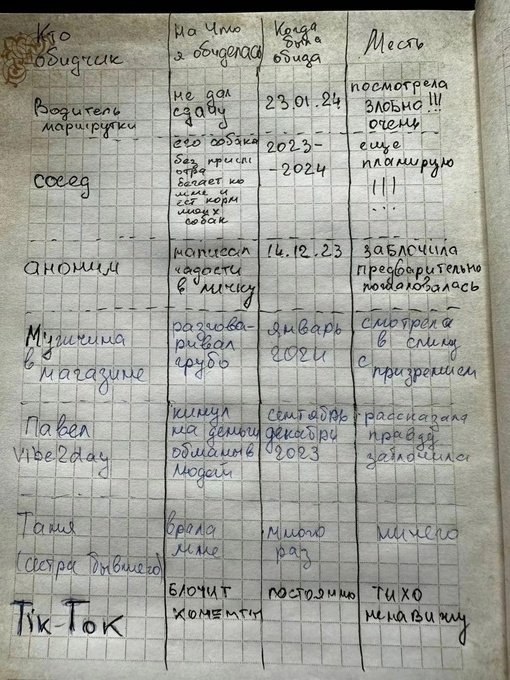 Кто обидчик
на что я обиделась
Когда была обида
Месть
Водитель маршрутки
не дал сдачу
23.01.24
посмотрела злобно!!! очень
сосед
его собака без присмотра бегает ко мне и ест корм моих собак
2023-
-2024
еще планирую
!!!
...
аноним
написал гадости в личку
14.12.23
заблочила предварительно пожаловалась
Мужчина в магазине
разгова-
ривал грубо
январь 2024
смотрела в спину с призрением
Павел Vibe2day
кинул на деньги обманыв людей
сентябрь декабрь 2023
рассказала правду заблочила
Таня (сестра бывшего)
врала мне
много раз
ничего
Tik-Tok
блочит коменты
постоянно
тихо ненавижу